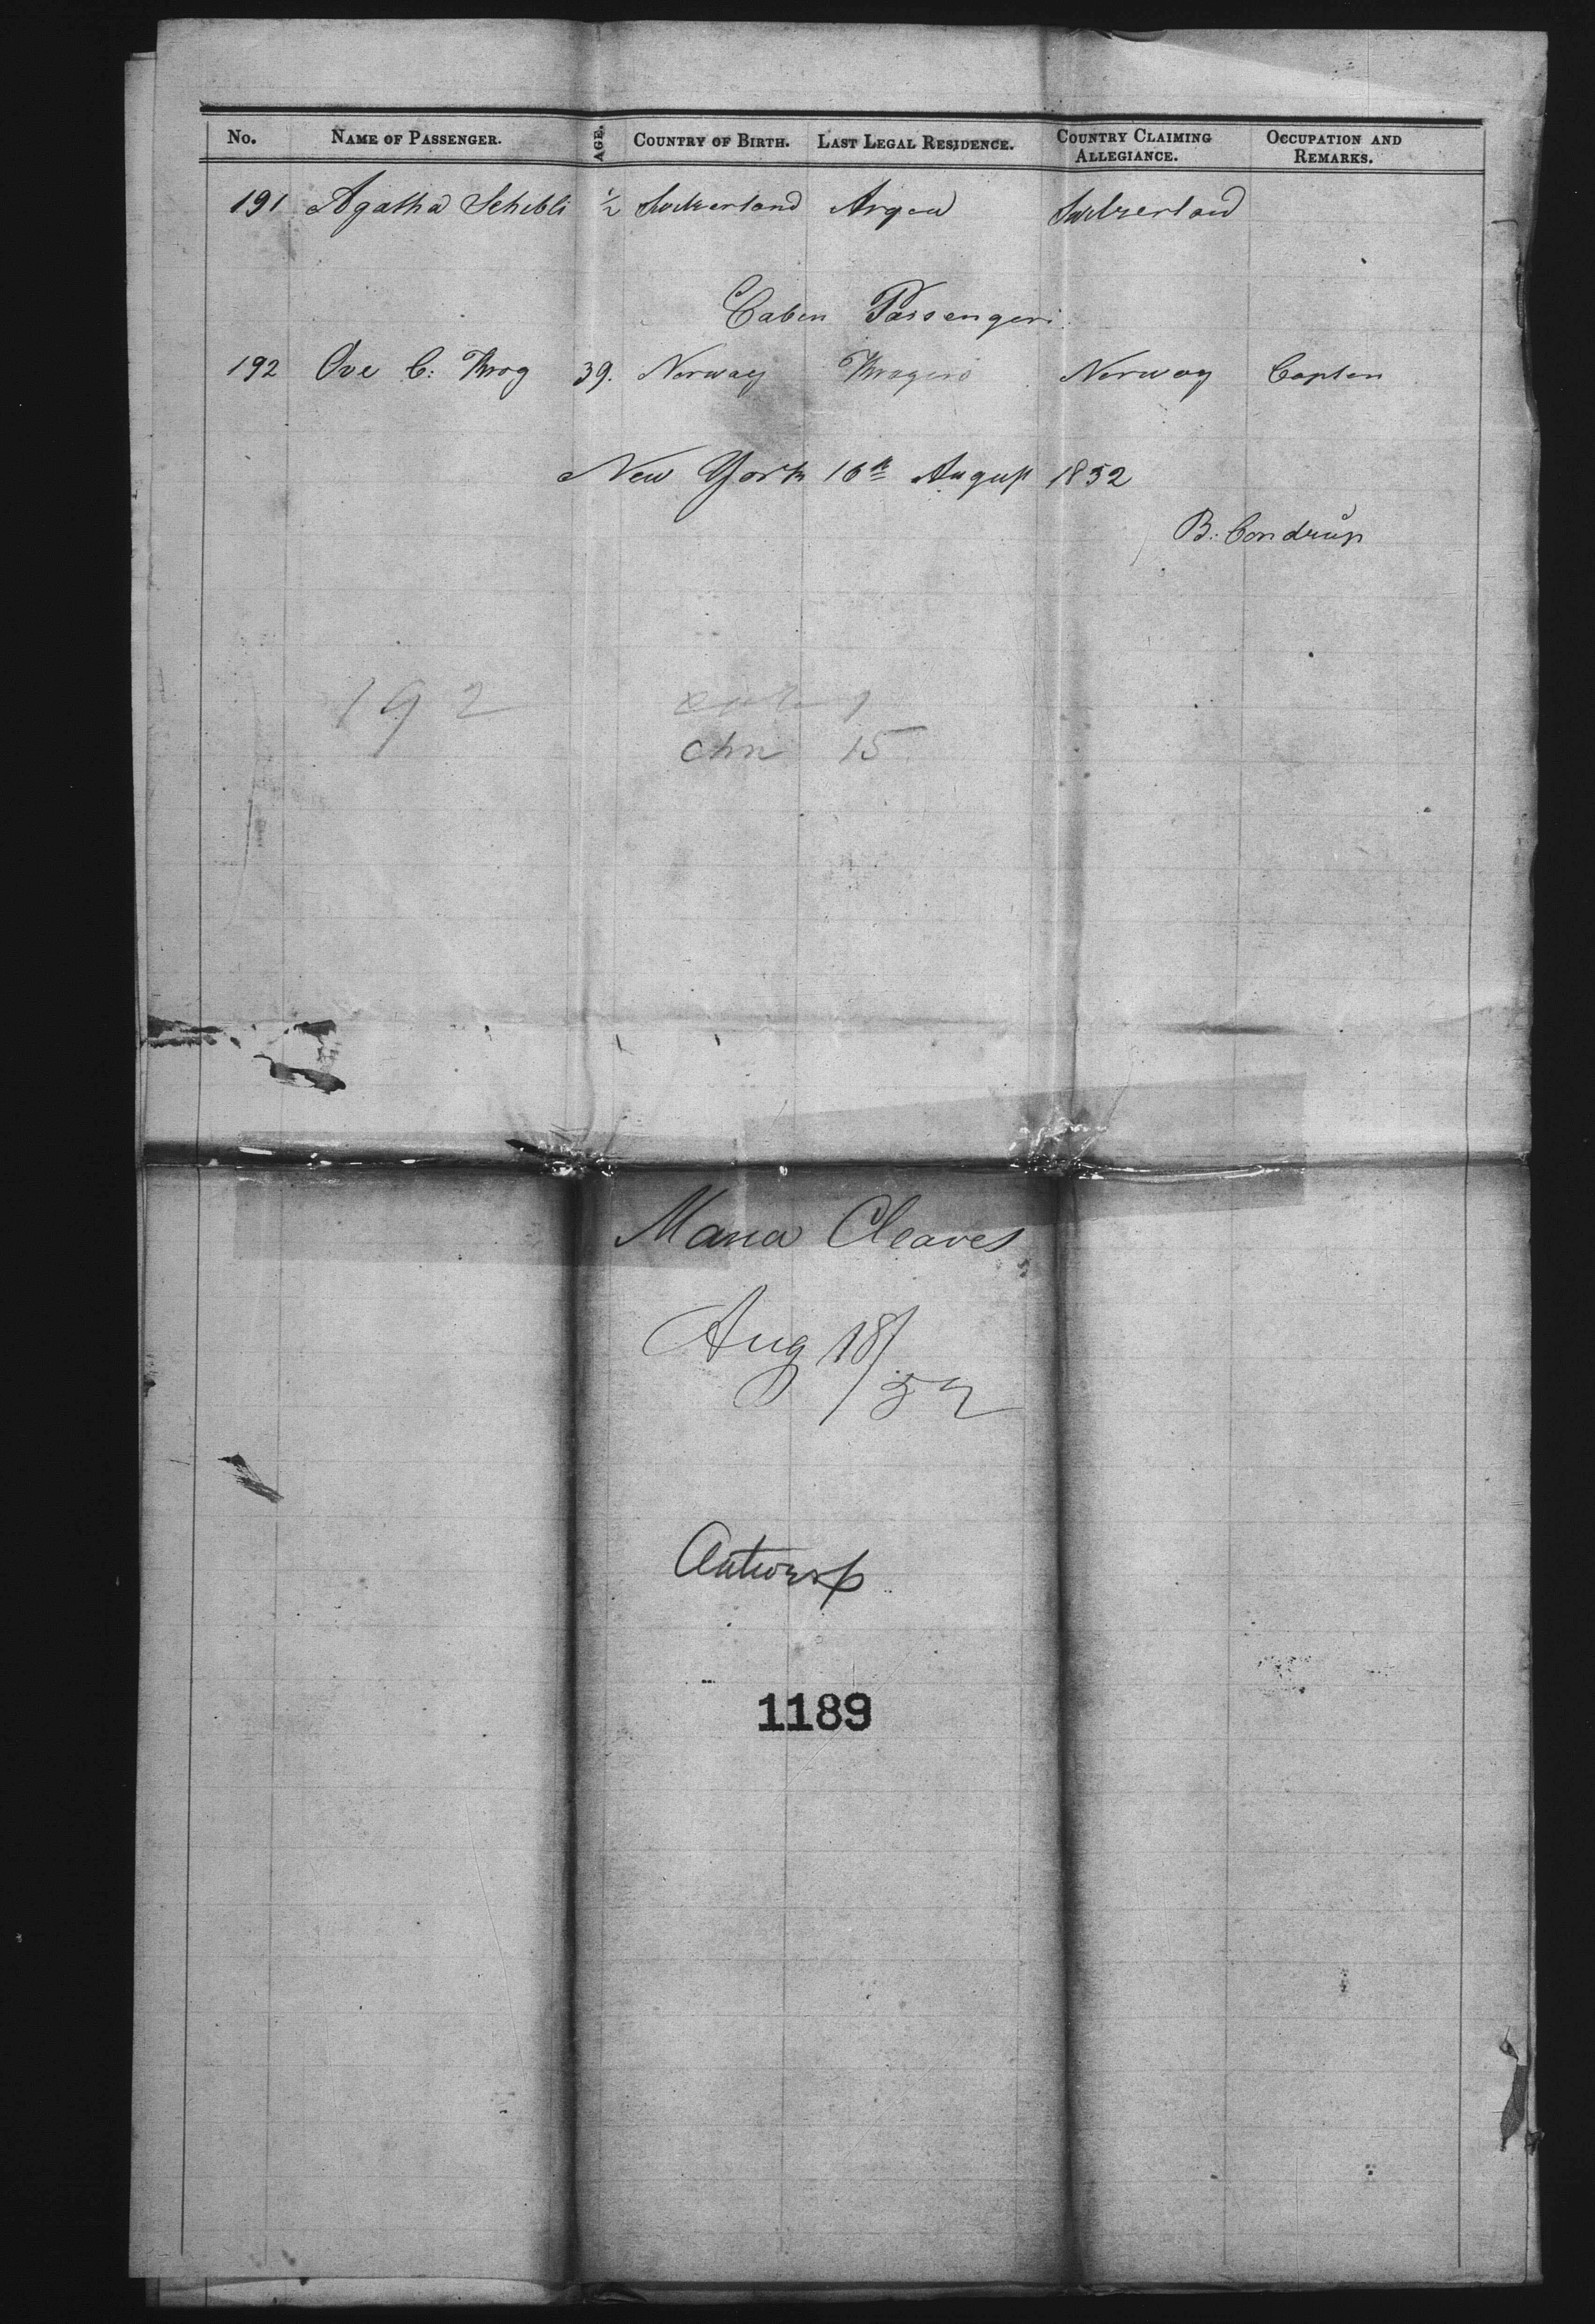 No. NAME OF PASSENGER. AGE. COUNTRY OF BIRTH. LAST LEGAL RESIDENCE. COUNTRY CLAIMING ALLEGIANCE. OCCUPATION AND REMARKS.
191 Agatha Schibli ½ Switzerland Argau Switzerland
Caben Passengers
192 Ove C: Krog 39. Norway Kragerö Norway Capten
New York 16th August 1852
B. Condrup
192
chn 15
Maria Cleaves
Aug 18/52
Antwerp
1189